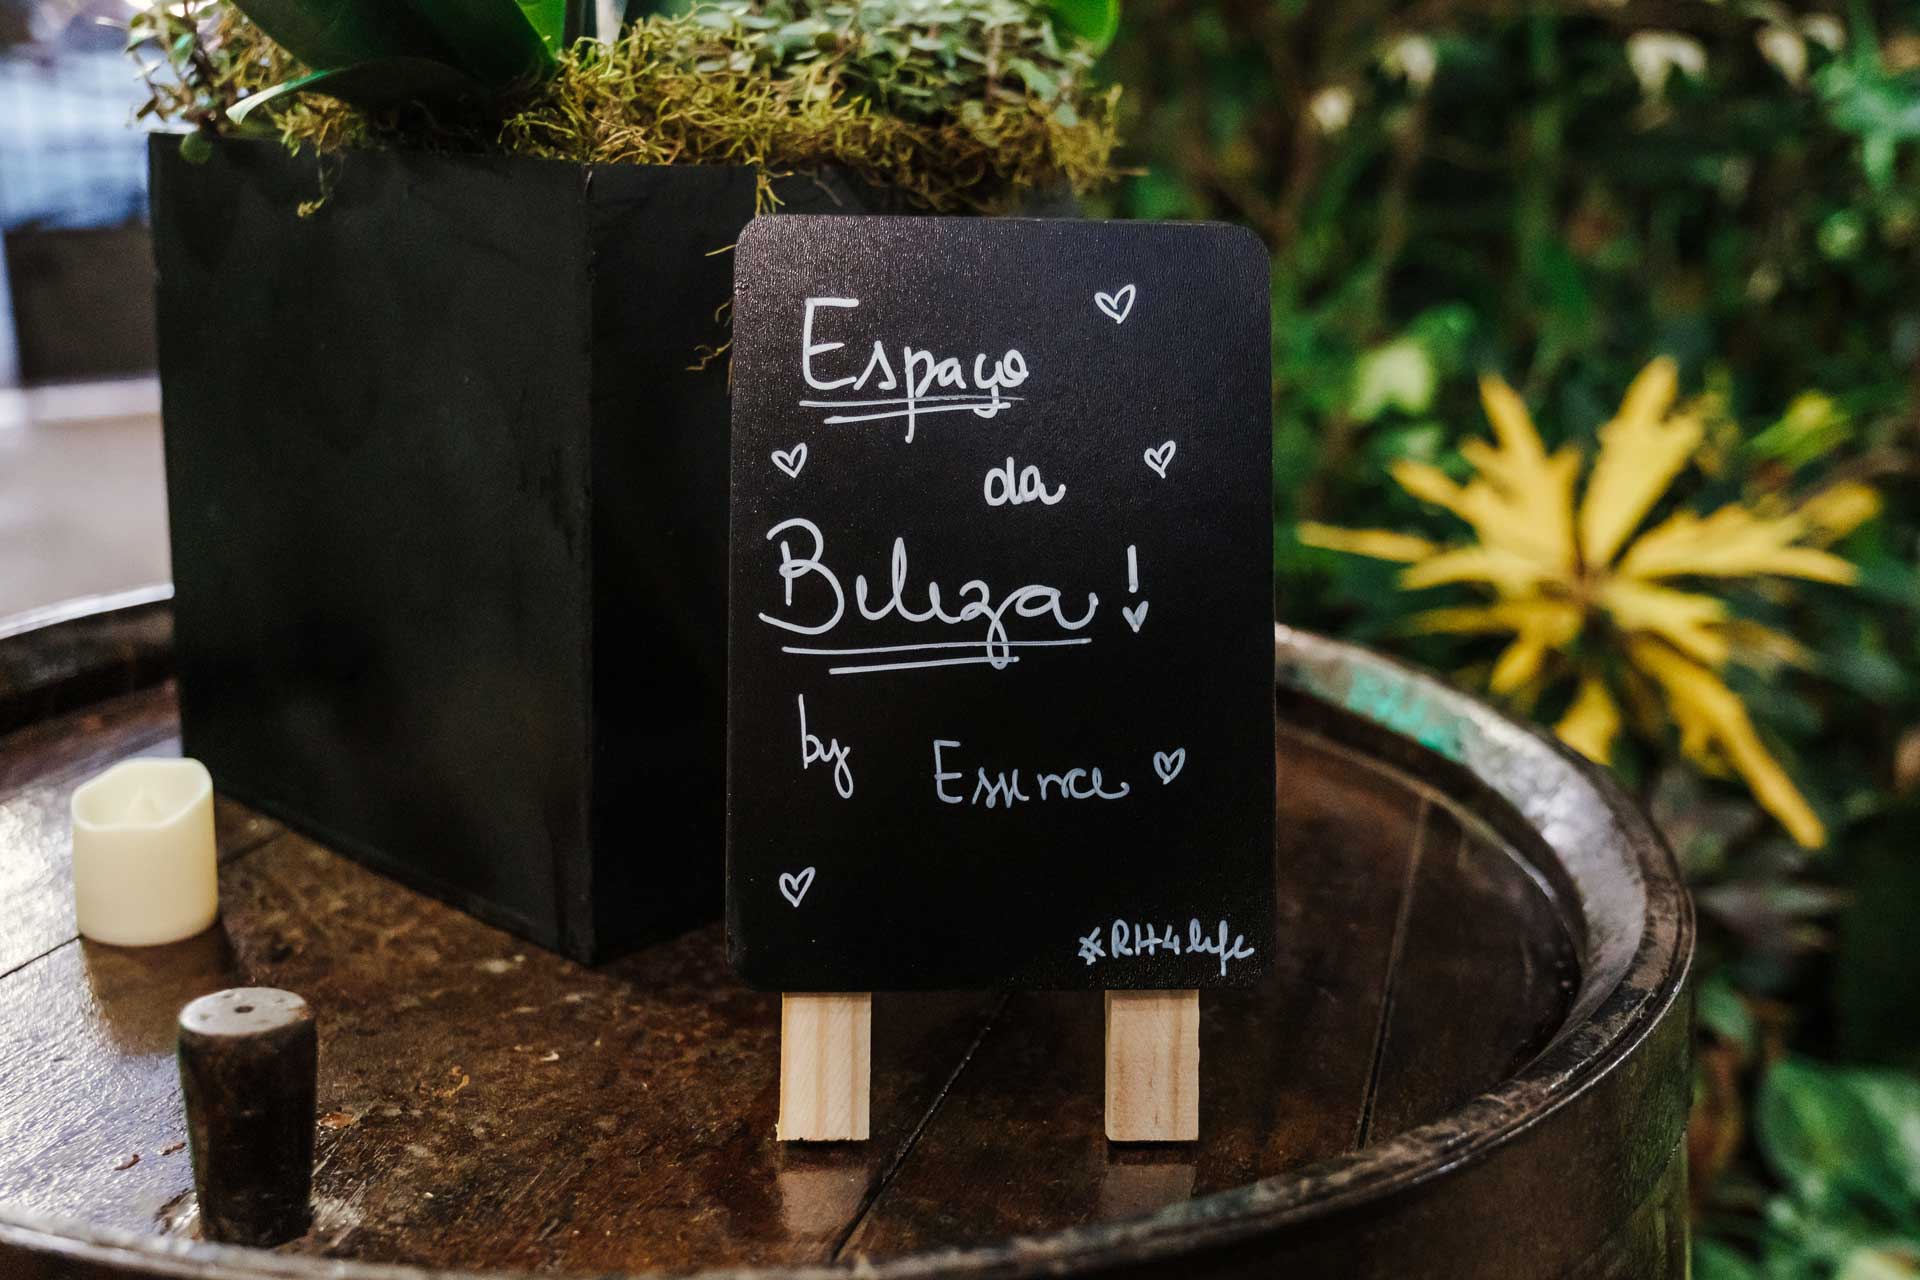 Espaço
da
Beleza!
by Essence
#RH4life